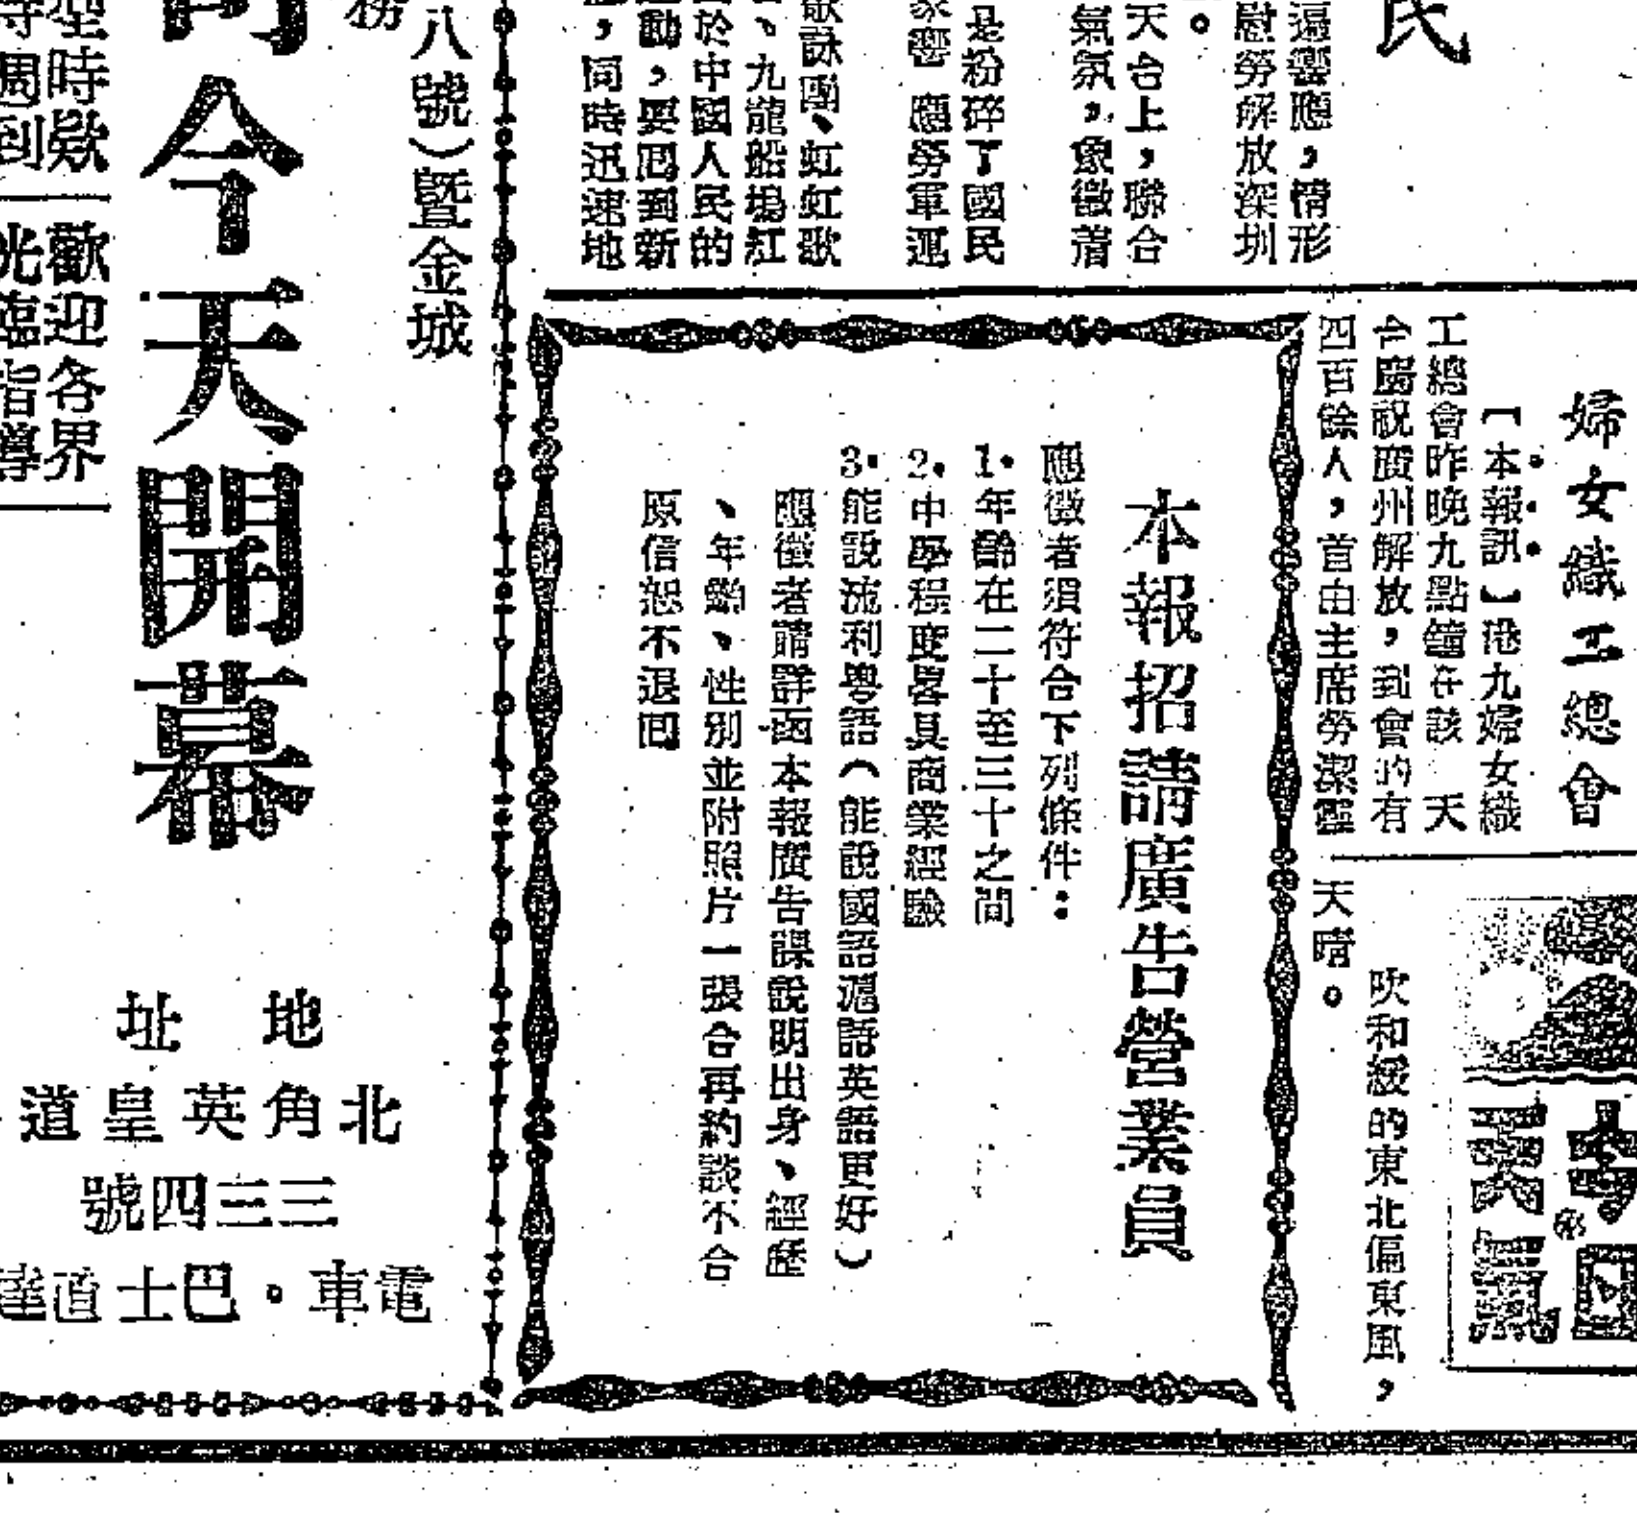 民
遍響應，情形
慰勞解放深圳
。
天台上，聯合
氣氛，象徵着
是粉碎了國民
家響應勞軍運
歌詠團、虹虹歌
、九龍船塢紅
於中國人民的
動，要回到新
，同時迅速地
婦女織工總會
【本報訊】港九婦女織
工總會昨晚九點鐘在該 天
台慶祝廣州解放，到會的有
四百餘人，首由主席勞潔靈
今日天氣
吹和緩的東北偏東風，
天晴。
本報招請廣告營業員
應徵者須符合下列條件：
1.年齡在二十至三十之間
2.中學程度畧具商業經驗
3.能說流利粵語（能說國語滬語英語更好）
應徵者請詳函本報廣告課說明出身、經歷
、年齡、性別並附照片一張合再約談不合
原信恕不退回
八號）暨金城
務
今天開幕
歡迎各界
光臨指導
時歘
週到
地址
北角英皇道
三三四號
電車。巴士直達